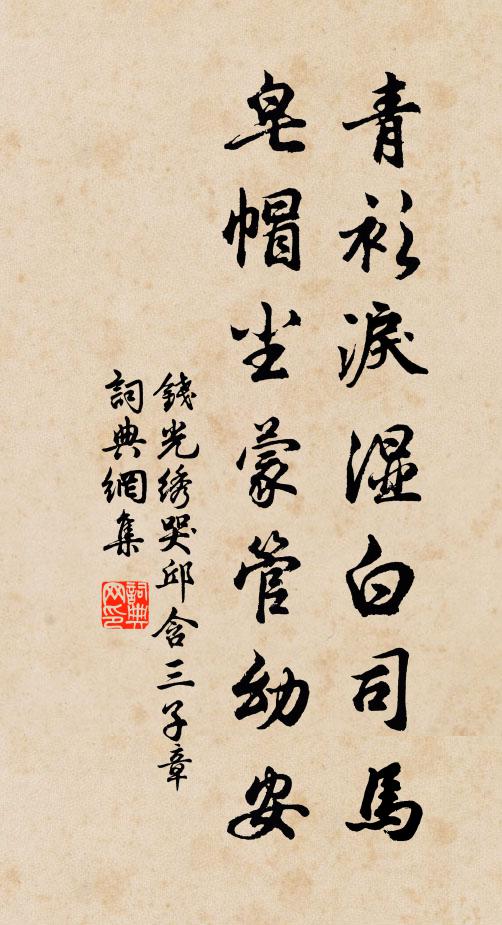 青衫淚湿白司馬
皂帽尘蒙管幼安
錢光绣哭邱含三子章
詞典網集
詞典网印